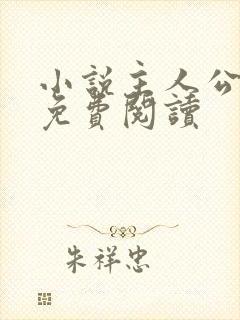 小說主人公
免費閱讀
朱祥忠